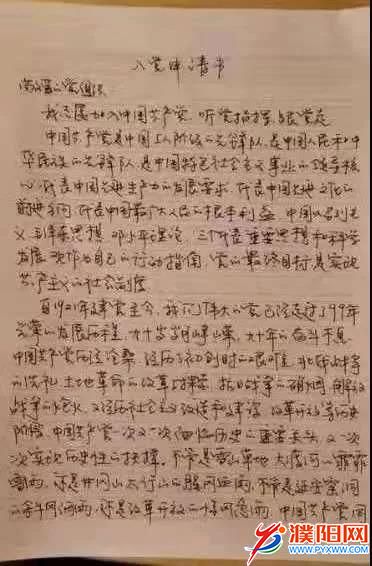 入党申请书
敬爱的党组织
我志愿加入中国共产党，听党指挥，跟党走
中国共产党是中国工人阶级的先锋队，是中国人民和中
华民族的先锋队，是中国特色社会主义事业的领导核
心，代表中国先进生产力的发展要求，代表中国先进文化的
前进方向，代表中国最广大人民的根本利益，中国以马列主
义，毛泽东思想，邓小平理论，三个代表重要思想和科学
发展观作为自己的行动指南，党的最终目标是实现
共产主义的社会制度
自1921年建党至今，我们伟大的党已经走过了99年
光荣的发展历程，九十岁月峥嵘，九十年的奋斗不息
中国共产党历经沧桑，经历了初创时的艰难，北伐战争
的洗礼，土地革命的改革与探索，抗日战争的硝烟，解放
战争的炮火，又经历社会主义改造和建设，改革开放等历史
阶段，中国共产党一次又一次面临历史的重要关头，又一次
次实现历史性的抉择，不管是雪山草地，大渡河的霏霏
雪雨，还是井冈山，太行山的腥风血雨，不管是延安窑洞
的，还是改革开放的，中国共产党
濮阳网
WWW.PYXWW.COM